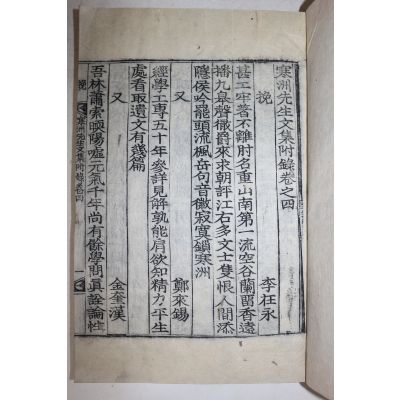 寒洲先生文集附錄卷之四
挽 李在永
甚工牢著不離肘名重山南第一流空谷蘭留香遠
播九皐聲徹爵來求朝評江右多文士隻恨人間添
隱侯吟罷頭流楓岳句音徽寂寞鎖寒洲
又 鄭來錫
經學士專五十年參詳見解孰能肩欲知精力平生
處看取遺文有幾篇
又 金奎漢
吾林蕭索暎陽噓元氣千年尚有餘學問眞詮論性
挽 寒洲先生文集附錄卷四 一